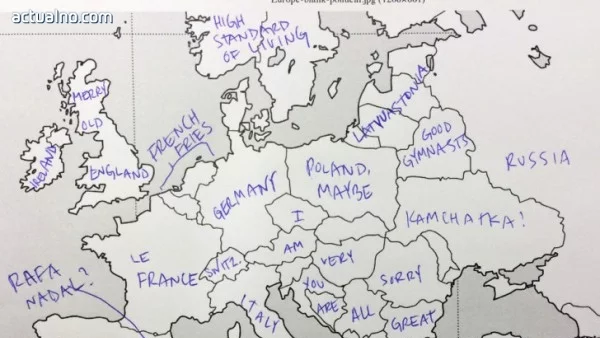 actualno.com
Europe-blank-political.jpg (1280×881)
HIGH
STANDARD
OF LIVING
MERRY
OLD
ENGLAND
IRELAND
FRENCH
FRIES
LATVIASTONIA
GOOD
GYMNASTS
RUSSIA
GERMANY
POLAND,
MAYBE
KAMCHATKA?
I
AM
VERY
SORRY
LE
FRANCE
SWITZ.
YOU
ARE
ALL
GREAT
ITALY
RAFA
NADAL?